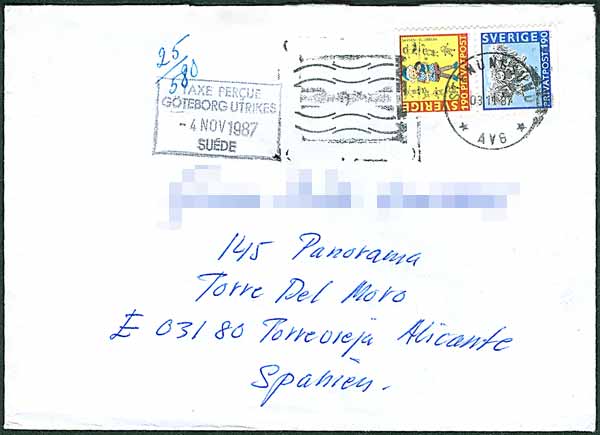 25/580
TAXE PERÇUE
GÖTEBORG UTRIKES
-4 NOV 1987
SUÈDE
SVERIGE
190 PRIVATPOST
SVERIGE
PRIVATPOST 190
03 11 87
AVG
145 Panorama
Torre Del Moro
E 03180 Torrevieja Alicante
Spanien.